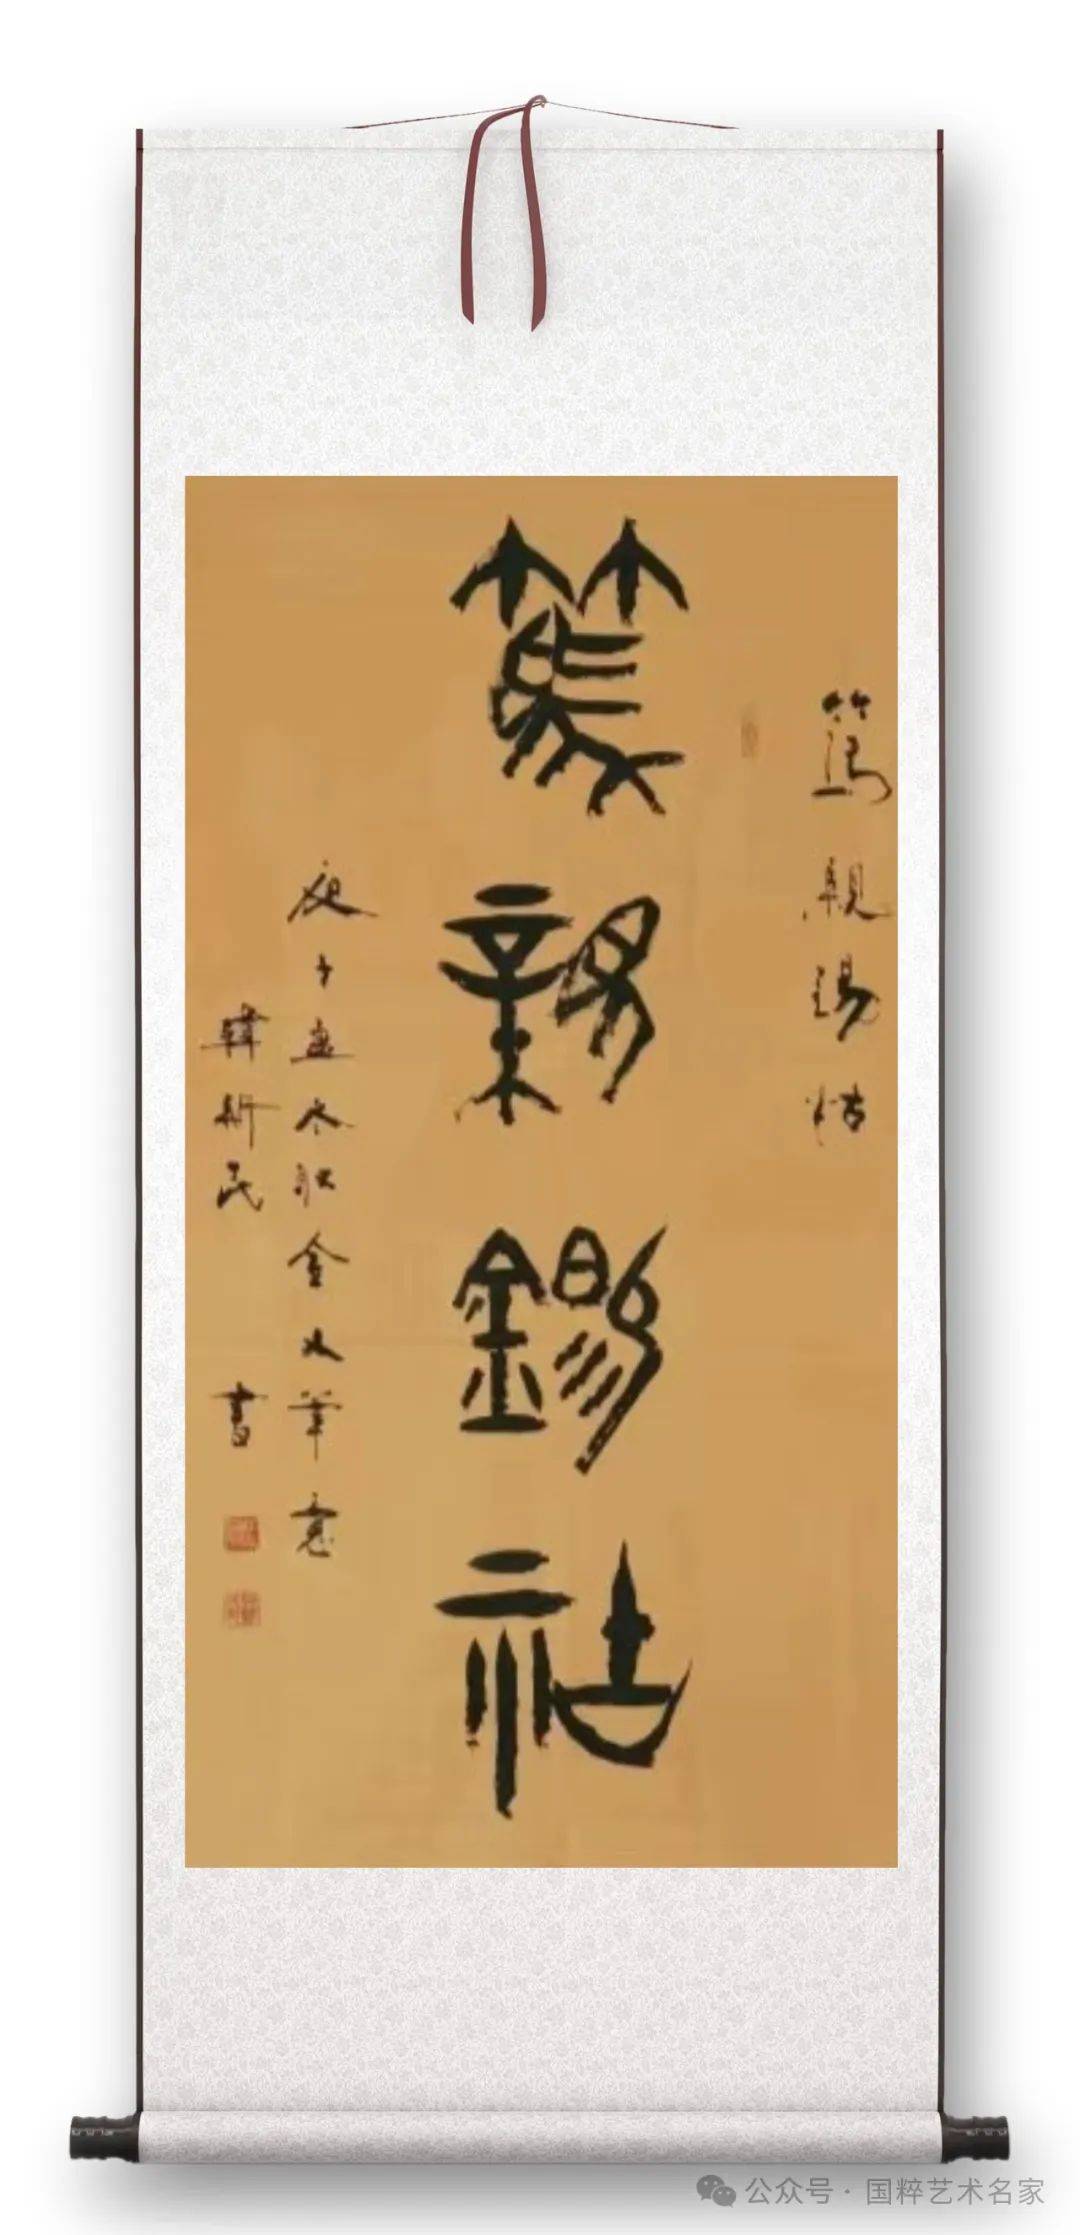 篤親錫祜
篤親錫祜
庚子孟冬江金文筆意
韓新民書
公众号·国粹艺术名家